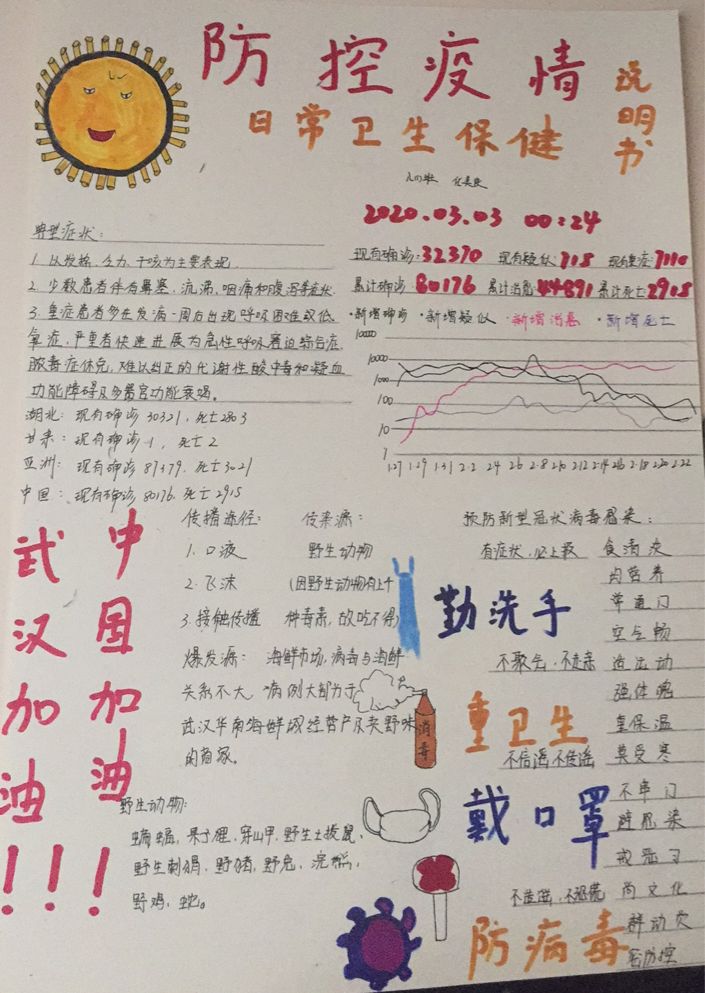 防控疫情
说明书
日常卫生保健
2020.03.03 00:24
典型症状:
现有确诊:32370 现有疑似:718 现有重症:7110
1.以发热、乏力、干咳为主要表现
累计确诊:80176 累计治愈:44891 累计死亡2915
2.少数患者伴有鼻塞,流涕,咽痛和腹泻等症状
·新增确诊 ·新增疑似 ·新增治愈 ·新增死亡
3.重症患者多在发病一周后出现呼吸困难或低
氧症,严重者快速进展为急性呼吸窘迫综合症
脓毒症休克,难以纠正的代谢性酸中毒和凝血
功能障碍及多器官功能衰竭。
100000
10000
1000
100
10
1
1.27 1.29 1.31 2.2 2.4 2.6 2.8 2.10 2.12 2.14 2.16 2.18 2.20 2.22
湖北:现有确诊30321,死亡2803
甘肃:现有确诊1,死亡2
亚洲:现有确诊87379.死亡3021
中国:现有确诊80176.死亡2915
武汉加油!
中国加油!!
传播途径:
1.口液
2.飞沫
3.接触传播
传染源:
野生动物
(因野生动物有上千
种毒素,故吃不得)
爆发源:海鲜市场,病毒与海鲜
关系不大,病例大都为于
武汉华南海鲜城经营户及卖野味
的商家。
消毒
野生动物:
蝙蝠、果子狸、穿山甲、野生土拨鼠、
野生刺猬、野猪、野兔、浣熊、
野鸡、蛇。
预防新型冠状病毒感染:
有症状,必上报
勤洗手
不聚会,不走亲
重卫生
不信谣不传谣
戴口罩
防病毒
食清淡
肉营养
常通门
空气畅
适运动
强体魄
重保温
莫受寒
不串门
避感染
戒恶习
尚文化
群动员